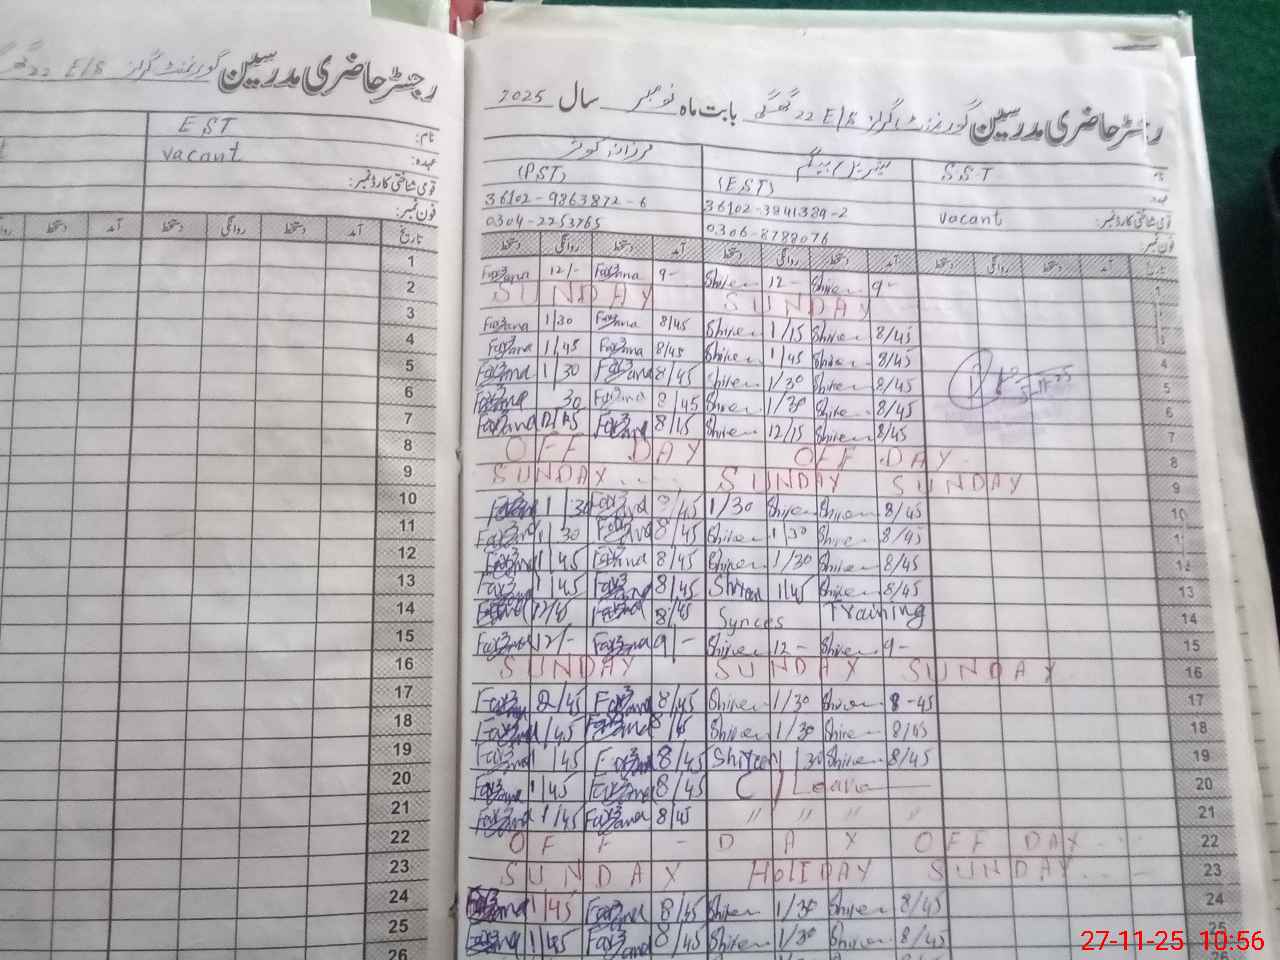 رجسٹر حاضری مدرسین گورنمنٹ گرلز 22 E/B
EST
نام:
vacant
عہدہ:
قومی شناختی کارڈ نمبر:
فون نمبر:
تاریخ آمد دستخط روانگی دستخط آمد دستخط
1
2
3
4
5
6
7
8
9
10
11
12
13
14
15
16
17
18
19
20
21
22
23
24
25
26
رجسٹر حاضری مدرسین گورنمنٹ گرلز 22 E/B بابت ماہ نومبر سال 2025
S.ST
(PST) (EST)
36102-9863872-6 36102-3841389-2 vacant قومی شناختی کارڈ نمبر:
0304-2253765 0306-8788076 فون نمبر:
دستخط روانگی دستخط آمد دستخط روانگی دستخط آمد دستخط روانگی دستخط آمد تاریخ
Farzana 12/- Farzana 9- Shireen 12- Shireen 9- 1
SUNDAY SUNDAY
Farzana 1/30 Farzana 8/45 Shireen 1/15 Shireen 8/45
Farzana 1/45 Farzana 8/45 Shireen 1/45 Shireen 8/45 4
Farzana 1/30 Farzana 8/45 Shireen 1/30 Shireen 8/45 5
Farzana 30 Farzana 8/45 Shireen 1/30 Shireen 8/45 6
Farzana Farzana 8/15 Shireen 12/15 Shireen 8/45 7
OFF DAY OFF DAY 8
SUNDAY SUNDAY SUNDAY 9
Farzana 1 30 Farzana /45 1/30 Shireen Shireen 8/45 10
Farzana 1 30 Farzana 8/45 Shireen 1/30 Shireen 8/45 11
Farzana 1/45 Farzana 8/45 Shireen 1/30 Shireen 8/45 12
Farzana 1/45 Farzana 8/45 Shireen 1/45 Shireen 8/45 13
Farzana 12/45 Farzana 8/45 Synces Training 14
Farzana 12/- Farzana 9/- Shireen 12- Shireen 9- 15
SUNDAY SUNDAY SUNDAY 16
Farzana 2/45 Farzana 8/45 Shireen 1/30 Shireen 8-45 17
Farzana 1/45 Farzana 8/45 Shireen 1/30 Shireen 8/45 18
Farzana 1 45 Farzana 8/45 Shireen 1 30 Shireen 8/45 19
Farzana 1/45 Farzana 8/45 C/Leave 20
Farzana 1/45 Farzana 8/45 " " " " 21
OFF - DAY OFF DAY 22
SUNDAY HOLIDAY SUNDAY 23
Farzana 1/45 Farzana 8/45 Shireen 1/30 Shireen 8/45 24
Farzana 1/45 Farzana 8/45 Shireen 1/30 Shireen 8/45 25
27-11-25 10:56